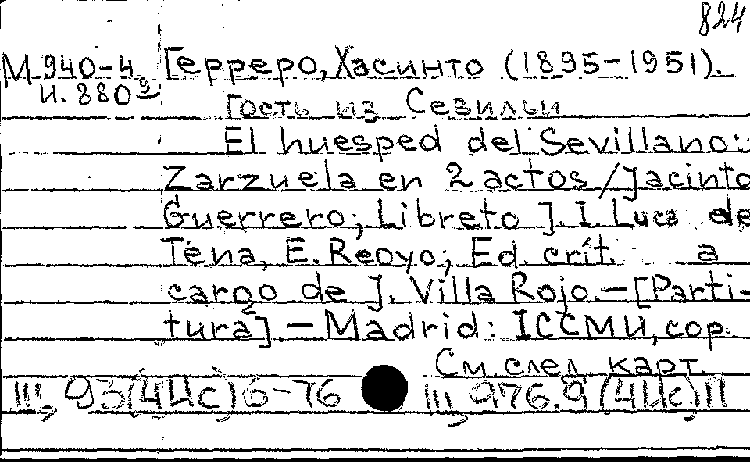 824
М 940-4 Герреро, Хасинто (1895-1951).
И. 880 9
Гость из Севильи
El huesped del Sevillano:
Zarzuela en 2 actos / Jacinto
Guerrero; Libreto J. I. Luca de
Tena, E. Reoyo; Ed. crit. a
cargo de J. Villa Rojo. – [Parti-
tura]. – Madrid: ICCMU, cop.
См. след. карт.
Ш, 93(4Ис)6-76 Ш, 976.9(4Ис)П